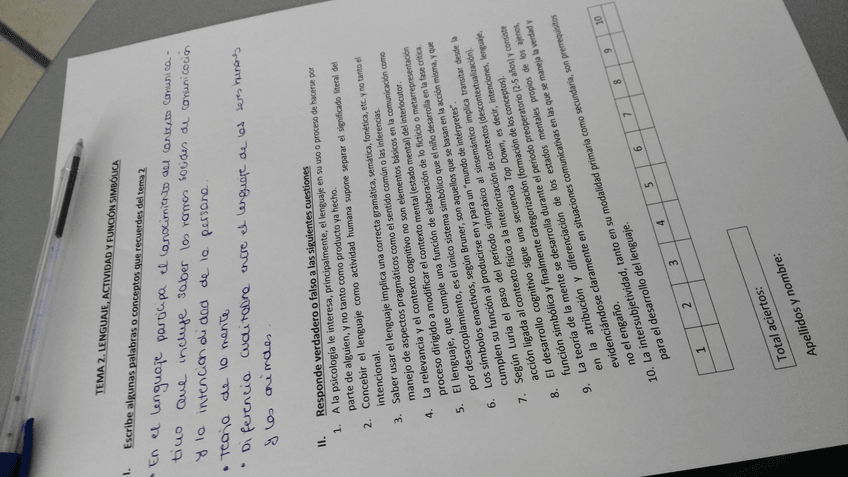 TEMA 2. LENGUAJE, ACTIVIDAD Y FUNCIÓN SIMBÓLICA
I. Escribe algunas palabras o conceptos que recuerdes del tema 2
• En el lenguaje participa el conocimiento del contexto comunica-
tivo que incluye saber los normas sociales de comunicación
y la intencionalidad de la persona.
• Teoría de la mente.
• Diferencia cualitativa entre el lenguaje de los seres humanos
y los animales.
II. Responde verdadero o falso a las siguientes cuestiones
1. A la psicología le interesa, principalmente, el lenguaje en su uso o proceso de hacerse por
parte de alguien, y no tanto como producto ya hecho.
2. Concebir el lenguaje como actividad humana supone separar el significado literal del
intencional.
3. Saber usar el lenguaje implica una correcta gramática, semática, fonética, etc. y no tanto el
manejo de aspectos pragmáticos como el sentido común o las inferencias.
4. La relevancia y el contexto cognitivo no son elementos básicos en la comunicación como
proceso dirigido a modificar el contexto mental (estado mental) del interlocutor.
5. El lenguaje, que cumple una función de elaboración de lo ficticio o metarrepresentación
por desacoplamiento, es el único sistema simbólico que el niño desarrolla en la fase crítica.
6. Los símbolos enactivos, según Bruner, son aquellos que se basan en la acción misma, y que
cumplen su función al producirse en y para un "mundo de intérpretes".
7. Según Luria el paso del período simpráxico al sinsemántico implica transitar desde la
acción ligada al contexto físico a la interiorización de contextos (descontextualización).
8. El desarrollo cognitivo sigue una secuencia Top Down, es decir, intenciones, lenguaje,
función simbólica y finalmente categorización (formación de los conceptos).
9. La teoría de la mente se desarrolla durante el período preoperatorio (2-5 años) y consiste
en la atribución y diferenciación de los estados mentales propios de los ajenos,
evidenciándose claramente en situaciones comunicativas en las que se maneja la verdad y
no el engaño.
10. La intersubjetividad, tanto en su modalidad primaria como secundaria, son prerrequisitos
para el desarrollo del lenguaje.
1 2 3 4 5 6 7 8 9 10
Total aciertos:
Apellidos y nombre: